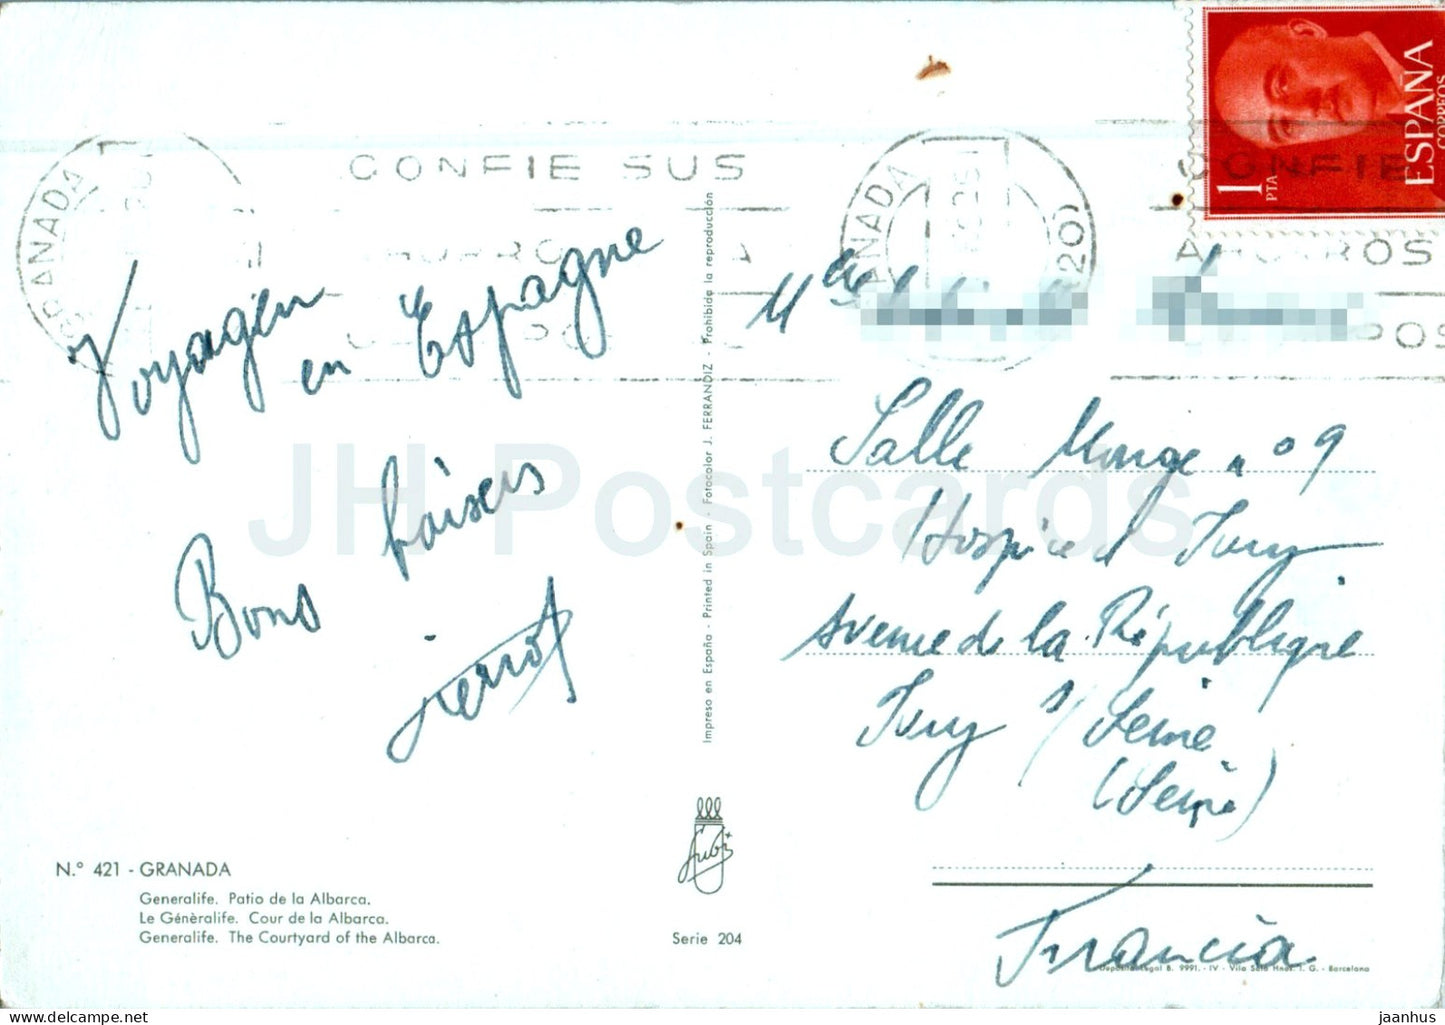 ESPAÑA
CORREOS
1
PTA
GRANADA
CONFIE SUS
AHORROS
GRANADA
(20)
CONFIE
AHORROS
Voyage en
en Espagne
Bons baisers
Pierrot
N.º 421 - GRANADA
Generalife. Patio de la Albarca.
Le Génèralife. Cour de la Albarca.
Generalife. The Courtyard of the Albarca.
Impreso en España - Printed in Spain - Fotocolor J. FERRANDIZ - Prohibida la reproducción
Serie 204
Salle Monge n° 9
Hospice d Ivry
Avenue de la République
Ivry s/ Seine
(Seine)
Francia
Depósito Legal B. 9991. - IV - Vila Sala Hnos. I. G. - Barcelona
JH Postcards
eu.jaanhus.com
_jaanhus_